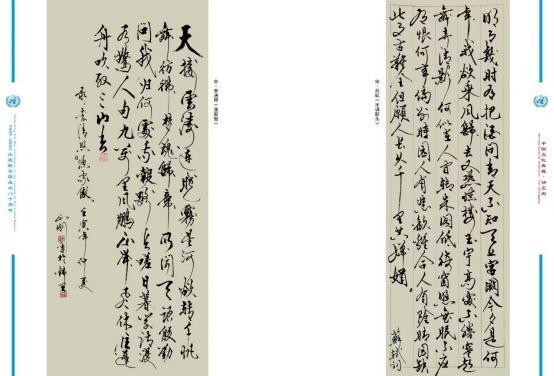 宋·苏轼《水调歌头》
明月幾時有把酒問青天不知天上宮闕今夕是何
年我欲乘風歸去又恐瓊樓玉宇高處不勝寒起
舞弄清影何似在人间轉朱阁低綺窗照無眠不应
有恨何事偏向别時圆人有悲歡離合月有陰晴圆缺
此事古難全但願人長久千里共嬋娟
蘇軾詞
宋·李清照《渔家傲》
天接雲濤連曉霧星河欲轉千帆
舞彷彿夢魂歸帝所聞天語殷勤
問我归何處我報路長嗟日暮學詩漫
有驚人句九万里風鵬正举風休住蓬
舟吹取三山去
录李清照漁家傲 壬寅年仲夏
1945-2025 庆祝联合国成立八十周年
中国文化典藏